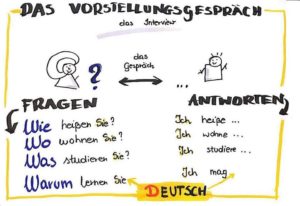 DAS VORSTELLUNGSGESPRÄCH
das Interview
?
das
Gespräch
...
FRAGEN
Wie heißen Sie?
Wo wohnen Sie?
Was studieren Sie?
Warum lernen Sie
ANTWORTEN
Ich heiße ...
Ich wohne ...
Ich studiere ...
Ich mag
DEUTSCH